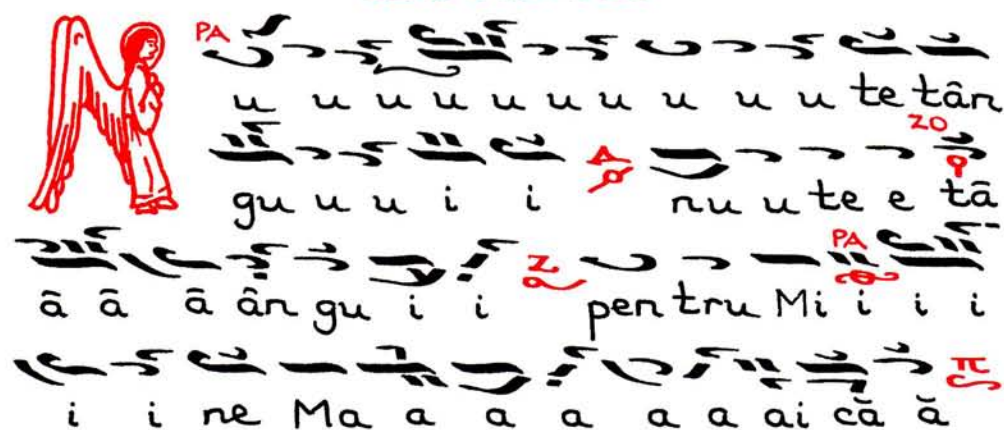 PA
u u u u u u u u u u te tân
ZO
gu u u i i nu u te e tâ
PA
â â â ân gu i i pen tru Mi i i i
i i ne Ma a a a a a ai că ă